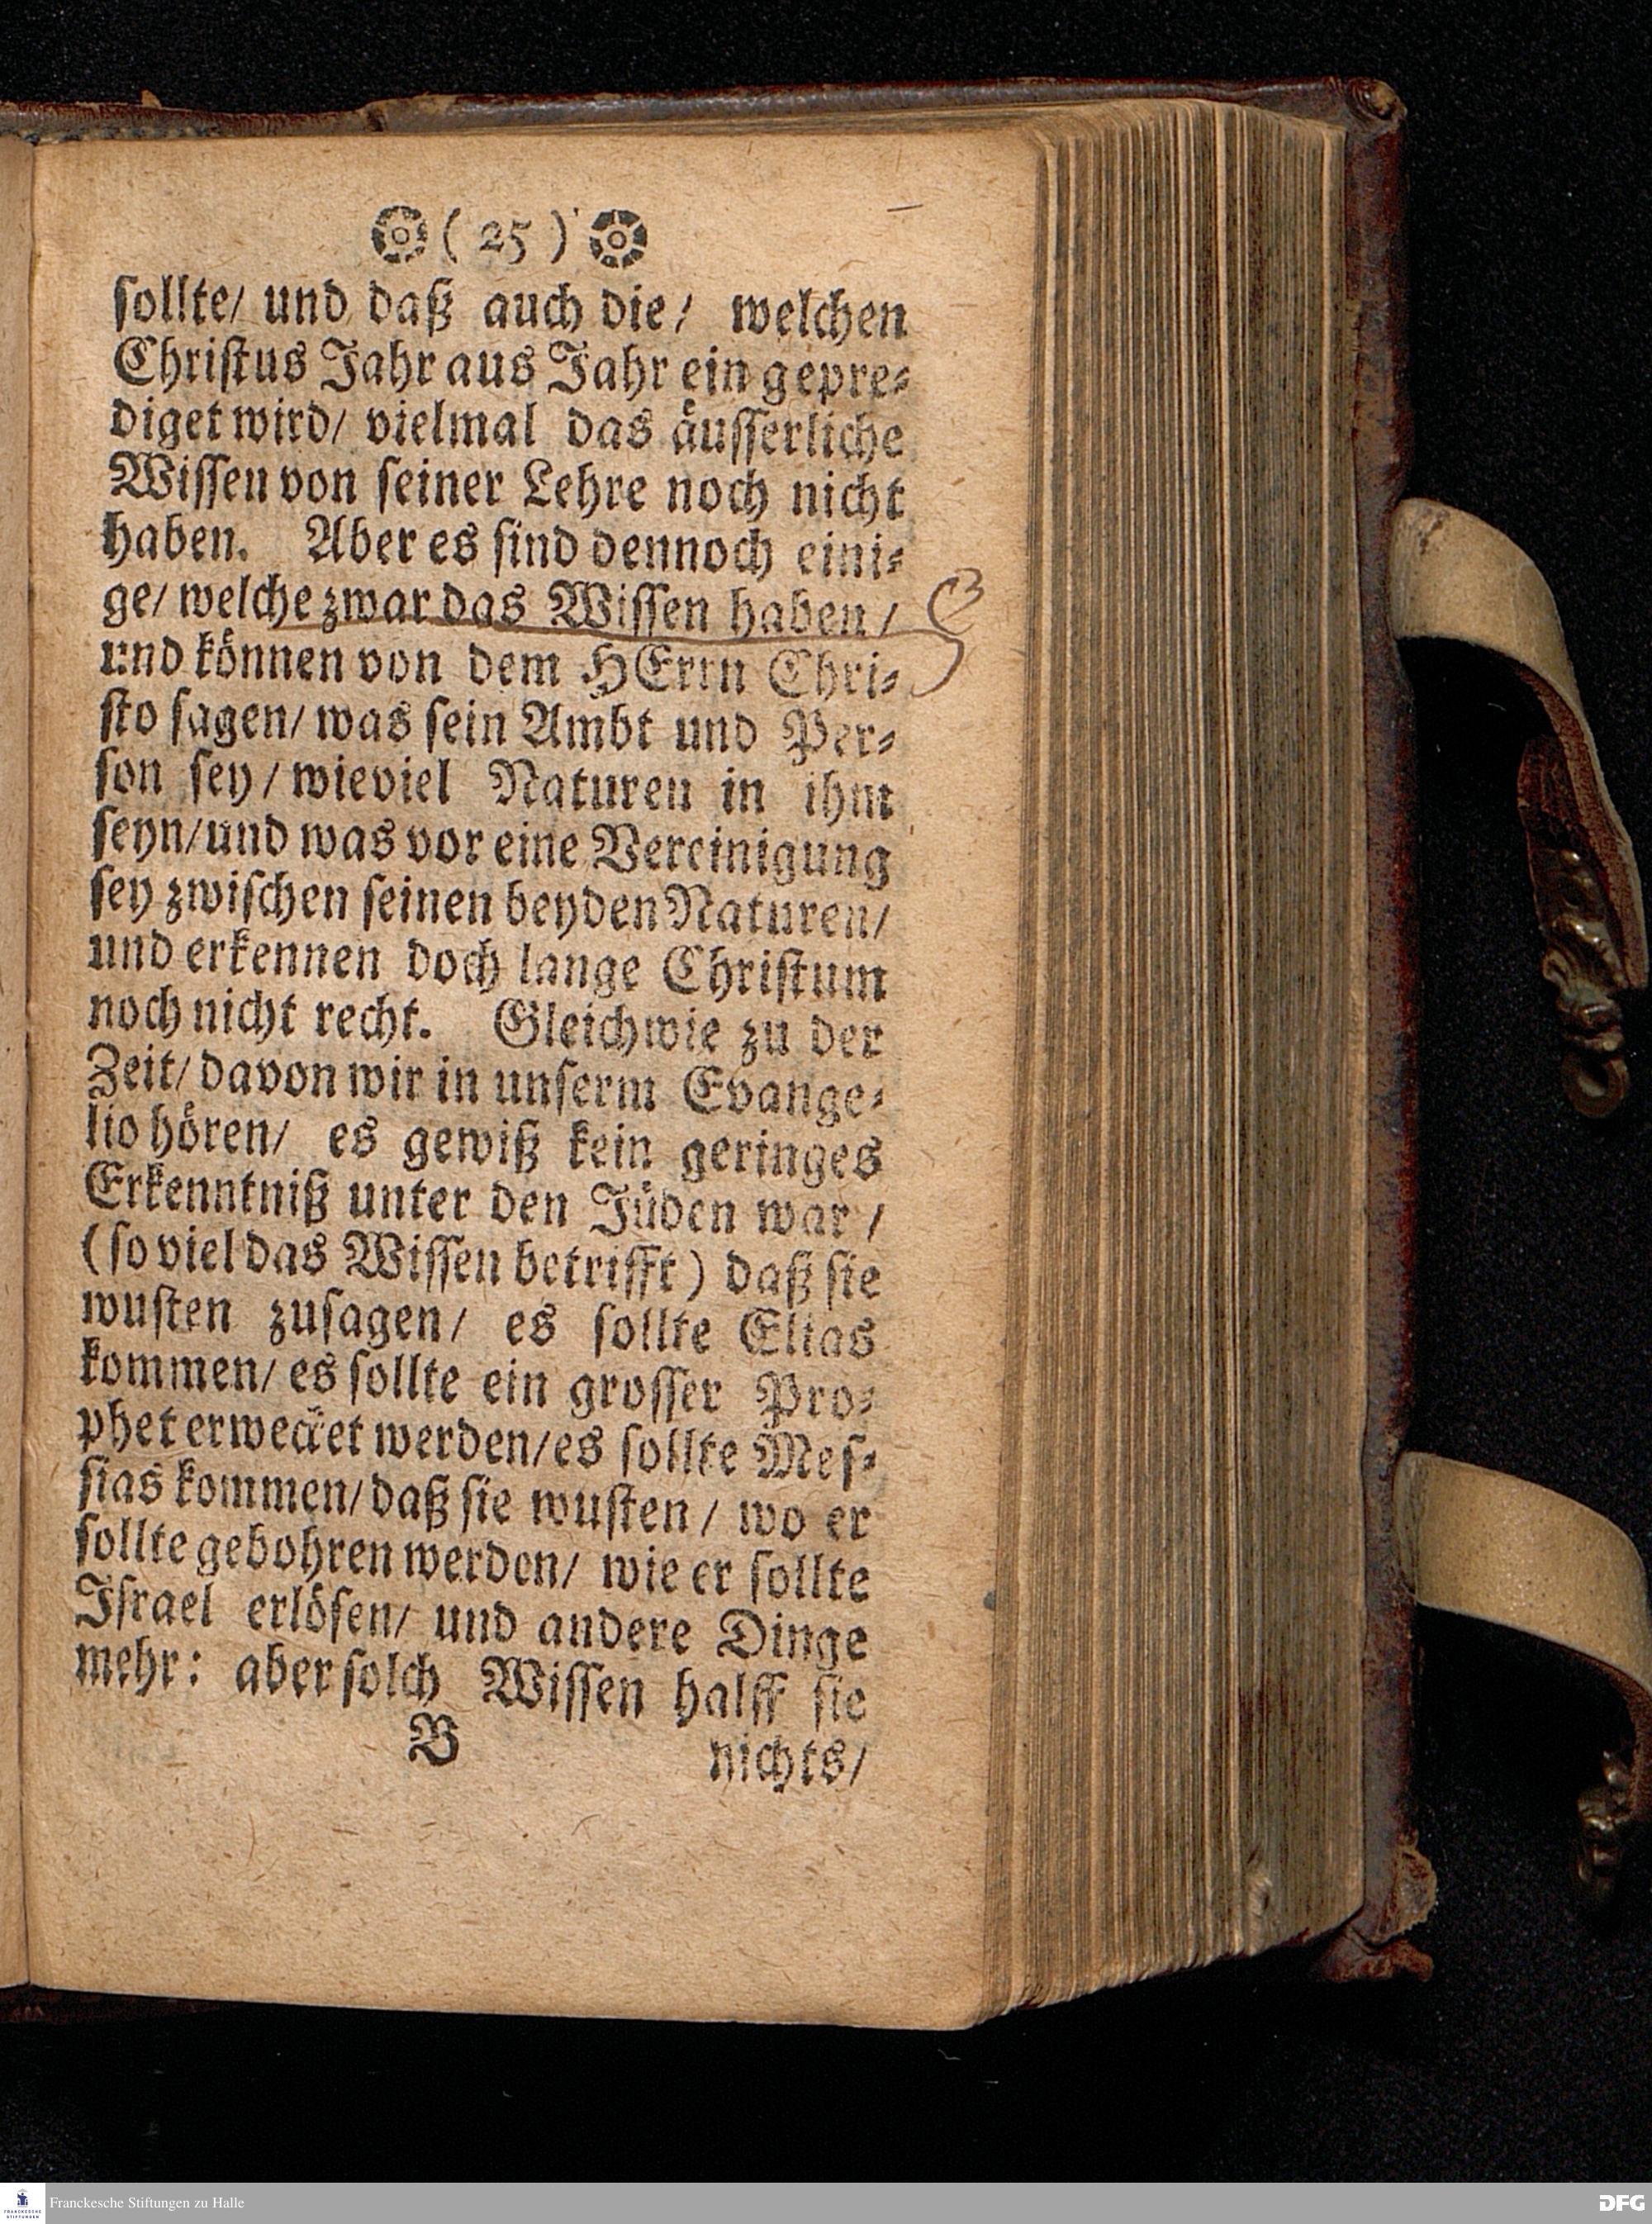 ( 25 )
sollte/ und daß auch die/ welchen
Christus Jahr aus Jahr ein gepre-
diget wird/ vielmal das äusserliche
Wissen von seiner Lehre noch nicht
haben. Aber es sind dennoch eini-
ge/ welche zwar das Wissen haben/
und können von dem HErrn Chri-
sto sagen/ was sein Ambt und Per-
son sey/ wieviel Naturen in ihm
seyn/ und was vor eine Vereinigung
sey zwischen seinen beyden Naturen/
und erkennen doch lange Christum
noch nicht recht. Gleichwie zu der
Zeit/ davon wir in unserm Evange-
lio hören/ es gewiß kein geringes
Erkenntniß unter den Jüden war/
(so viel das Wissen betrifft) daß sie
wusten zusagen/ es sollte Elias
kommen/ es sollte ein grosser Pro-
phet erwecket werden/ es sollte Mes-
sias kommen/ daß sie wusten/ wo er
sollte gebohren werden/ wie er sollte
Israel erlösen/ und andere Dinge
mehr: aber solch Wissen halff sie
B nichts/
Franckesche Stiftungen zu Halle
DFG